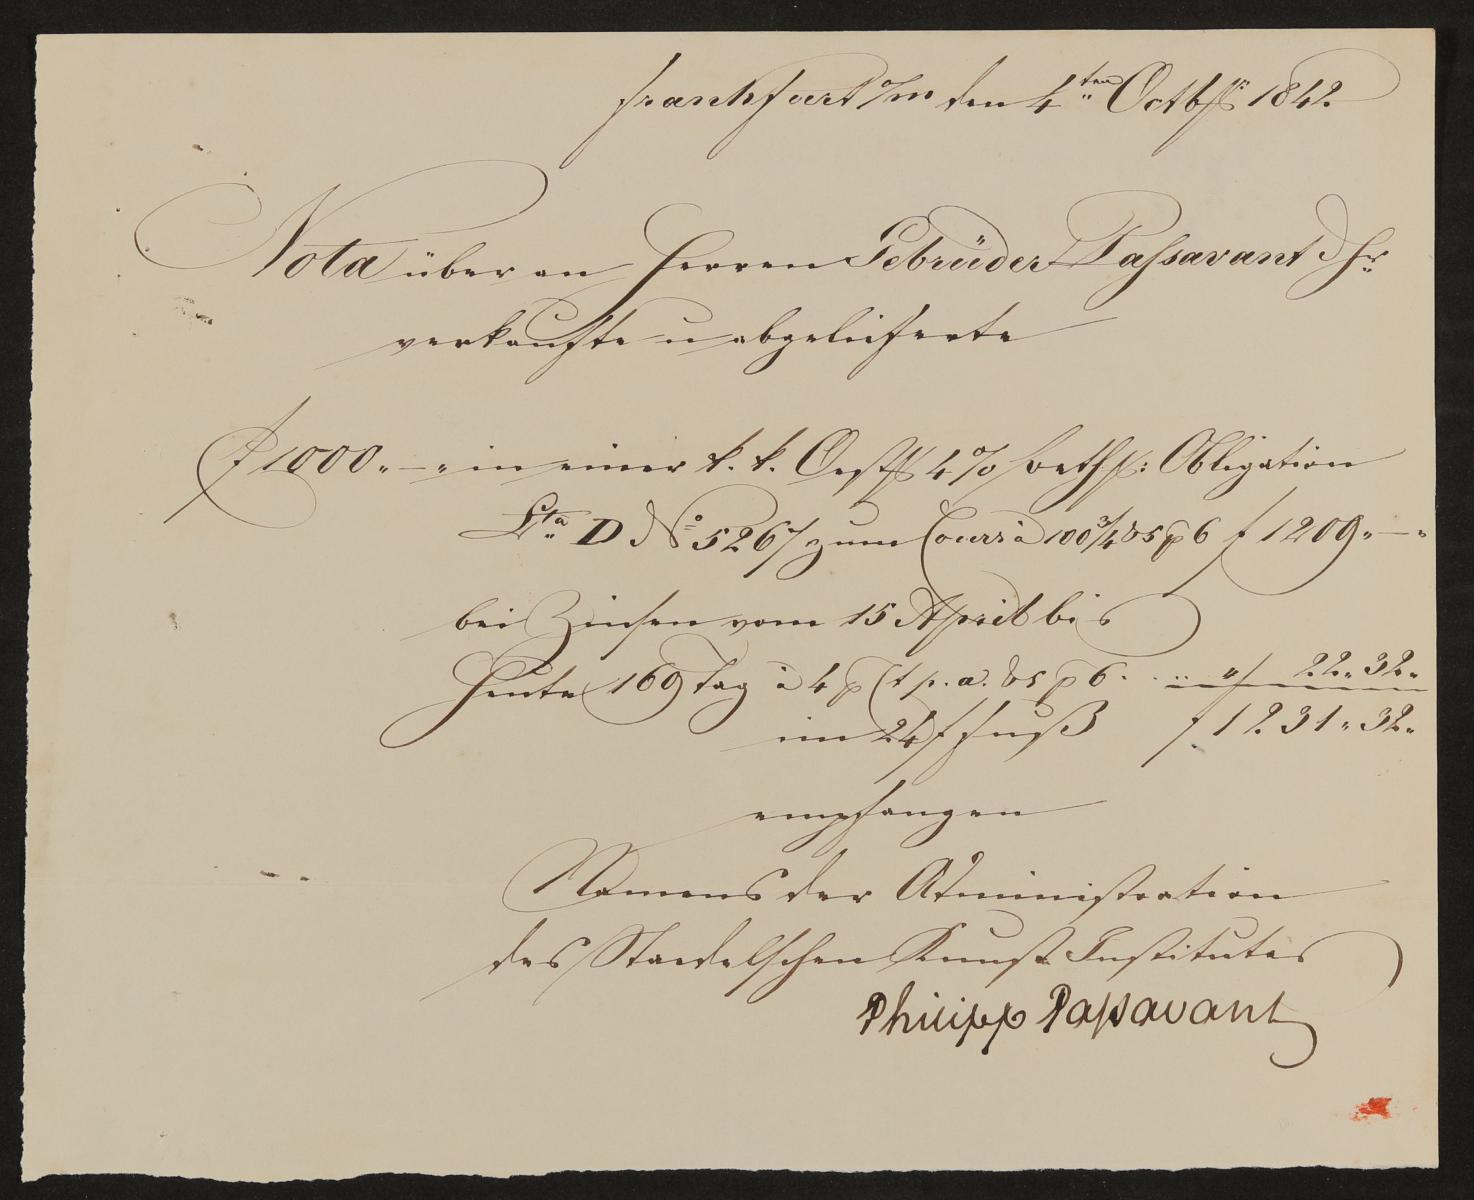 Frankfurt a/m den 4ten Octbr: 1842.
Nota über an Herren Gebrüder Passavant dhr.
verkaufte u abgelieferte
f 1000.-. in einer k. k. Oestr 4% Beth: Obligation
Lta D No 5267 zum Cours à 100 3/4 & 5 p 6 f 1209.-.
bei Zinsen vom 15 April bis
Heute 169 Tag à 4 p Ct p. a. & 5 p 6 . . . " 22.32.
im 24 f fuß f 1231.32.
empfangen
Namens der Administration
des Staedelschen Kunst Institutes
Philipp Passavant